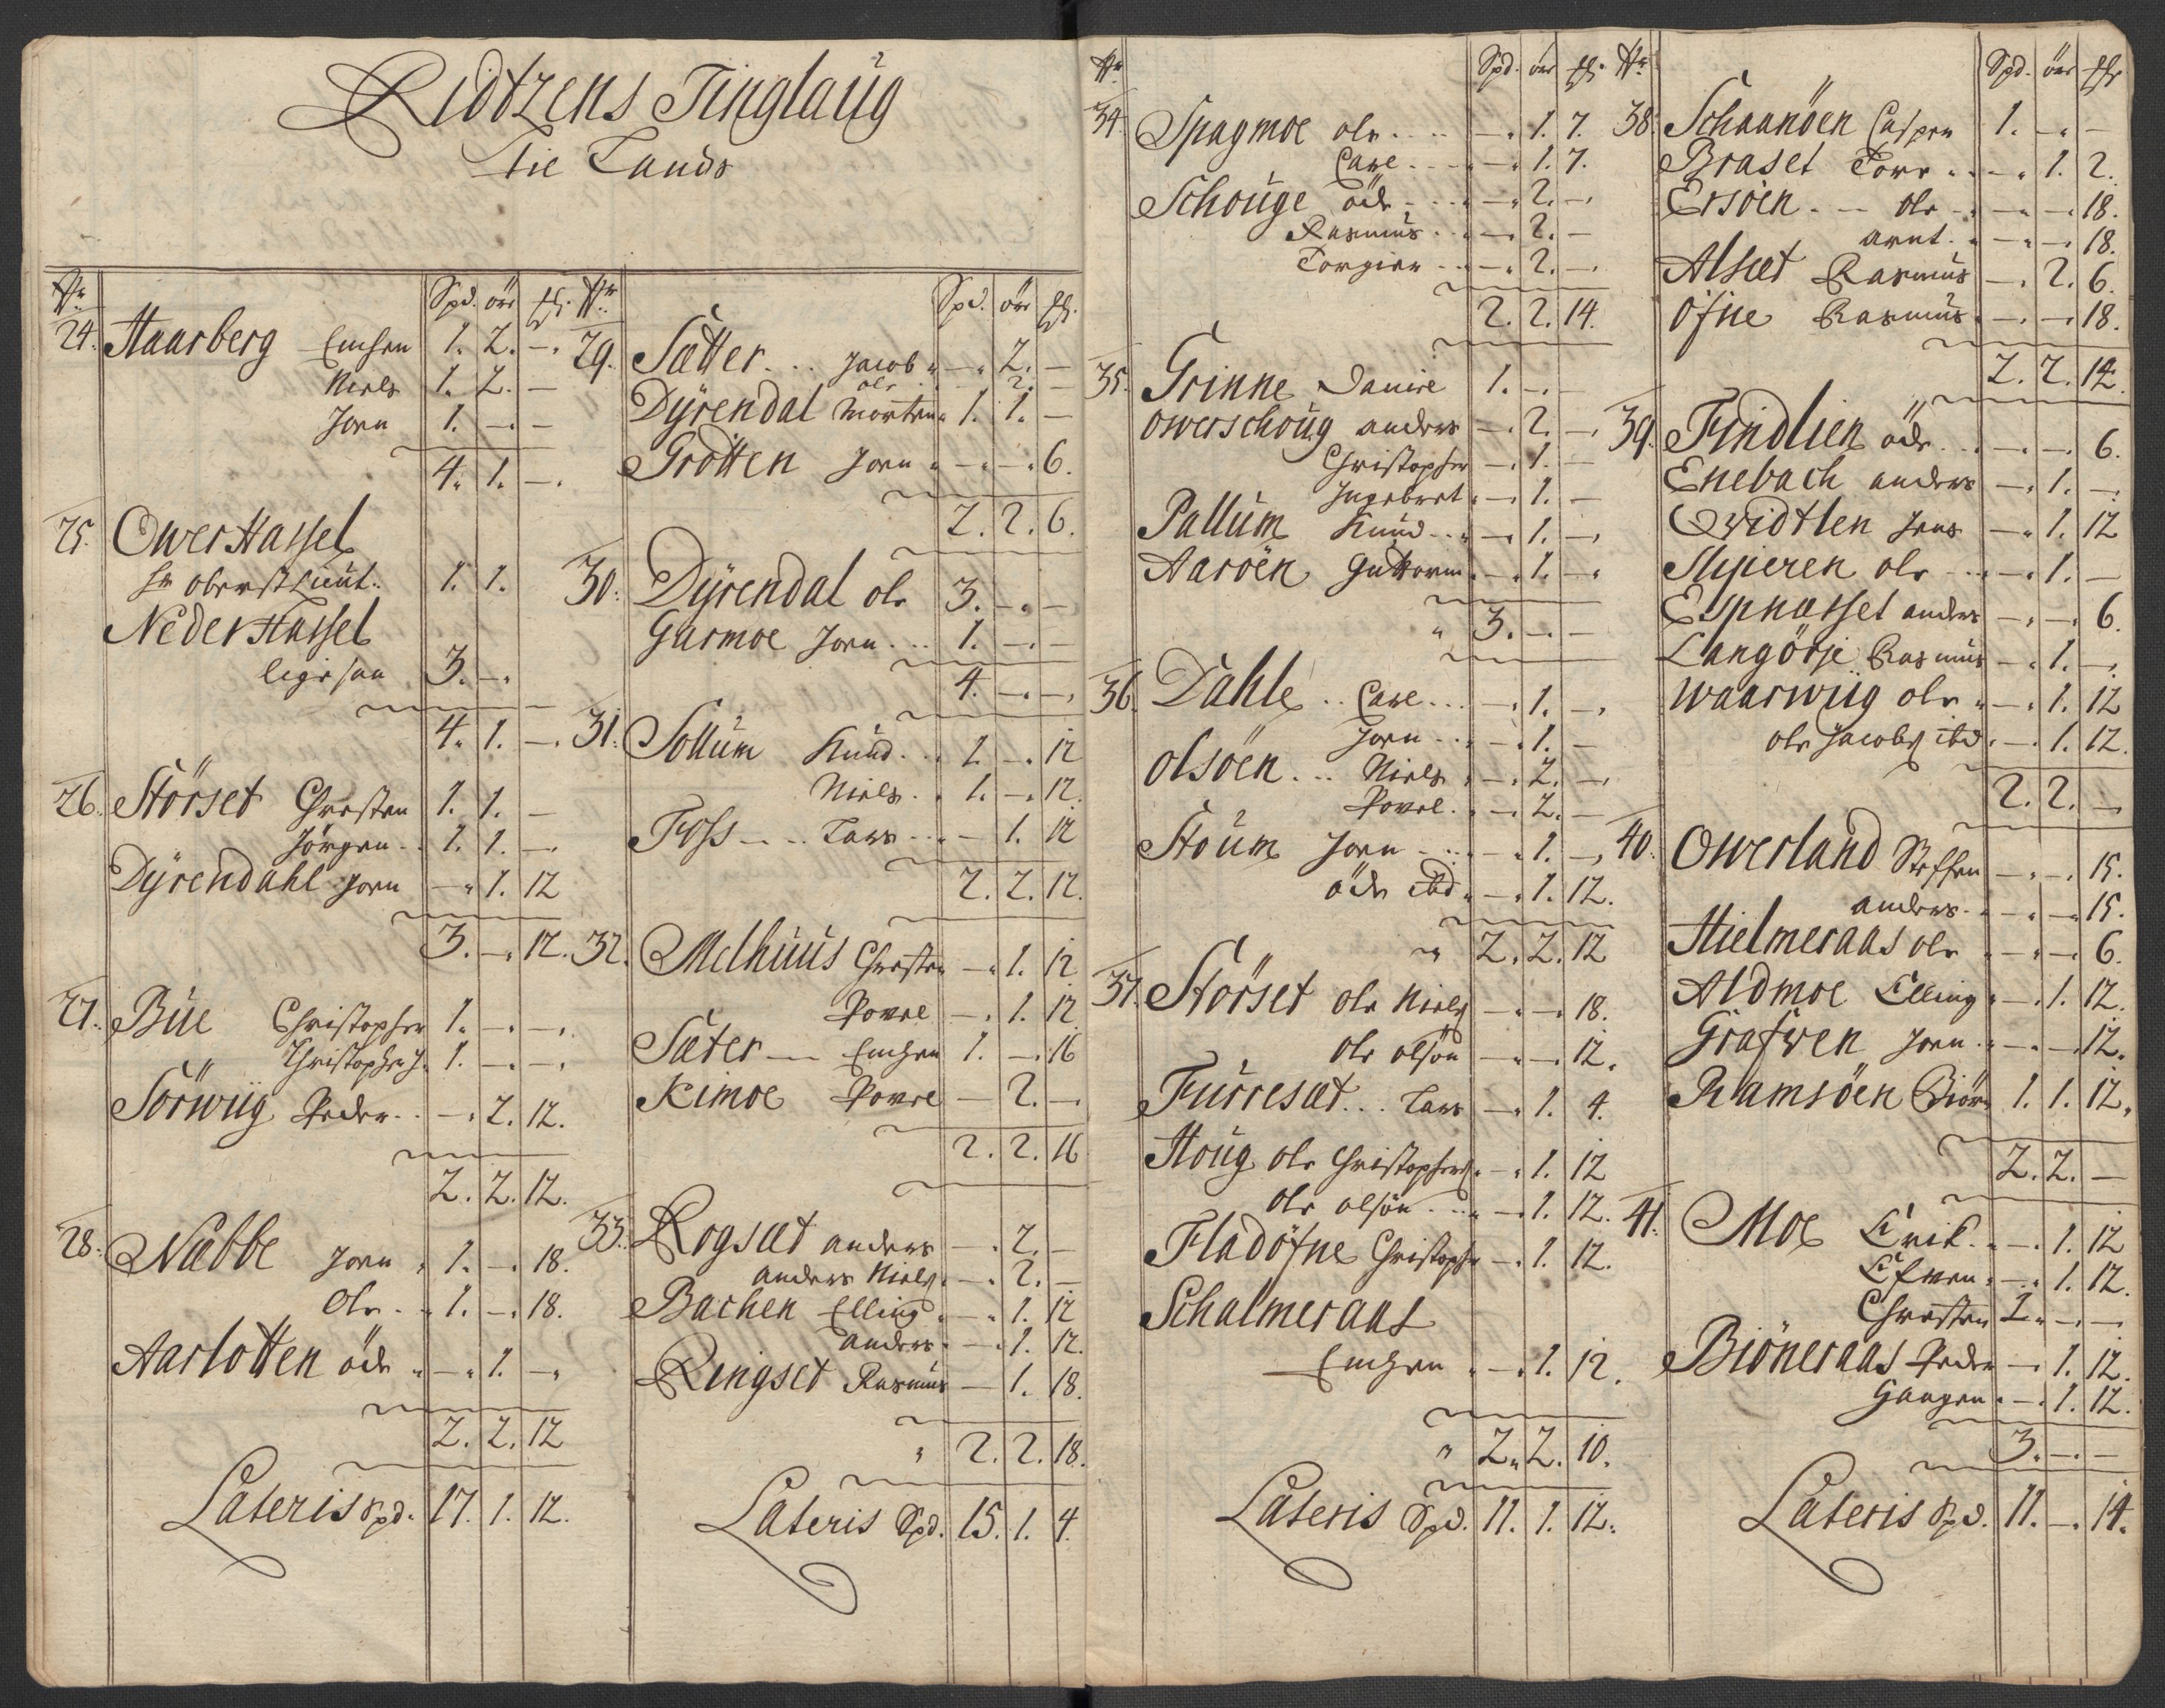 Ridtzens Tinglaug
Tie Lands
Nr. Spd. ört ßl.
24. Haarberg Einchen 1. 2. -
Niels 1. 2. -
Joen 1. - -
4. 1. -
25. Ower Hassel
Hr oberst Lieut: 1. 1.
Neder Hassel
ligesaa 3. -
4. 1. -
26. Störset Chresten 1. 1. -
Jörgen 1. 1. -
Dÿrendahl Joen - 1. 12
3. - 12.
27. Büe Christopher 1. - -
Christopher J. 1. - -
Sörwiig Peder - 2. 12.
2. 2. 12.
28. Næbbe Joen 1. - 18.
Ole 1. - 18.
Aarlotten öde - 1. -
2. 2. 12
Lateris Spd. 17. 1. 12.
Nr. Spd. ört ßl.
29. Sætter Jacob - 2. -
ole - 2. -
Dÿrendal Morten 1. 1. -
Grötten Joen - - 6.
2. 2. 6.
30. Dÿrendal ole 3. - -
Garmoe Joen 1. - -
4. - -
31. Sollum Knud 1. - 12
Niels 1. - 12.
Foss Lars - 1. 12
2. 2. 12.
32. Melhuus Chresten - 1. 12
Powel - 1. 12
Sæter Einchen 1. - 16
Kimoe Powel - 2. -
2. 2. 16
33. Rogsæt anders - 2. -
anders Niels - 2. -
Bachen Elling - 1. 12
anders - 1. 12.
Ringset Rasmus - 1. 18.
2. 2. 18.
Lateris Spd. 15. 1. 4.
Nr. Spd. ört ßl.
34. Spagmoe ole - 1. 7.
Carl - 1. 7.
Schouge öde - 2. -
Rasmus - 2. -
Torgier - 2. -
2. 2. 14.
35. Grinne Daniel 1. - -
Owerschoug anders - 2. -
Christopher - 1. -
Ingebret - 1. -
Pallum Knud - 1. -
Aaröen Guttorm - 1. -
3. - -
36. Dahle Carl - 1. -
Joen - 1. -
Olsöen Niels - 2. -
Powel - 2. -
Stoum Joen - 1. -
öde ibd - 1. 12.
2. 2. 12
37. Störset ole Niels - - 18.
ole olsön - - 12.
Fürresæt Lars - 1. 4.
Houg ole Christophers - 1. 12
ole olsön - 1. 12.
Fladöfne Christopher - 1. 12.
Schalmeraas
Einchen - 1. 12.
2. 2. 10.
Lateris Spd. 11. 1. 12.
Nr. Spd. ört ßl.
38. Schaanöen Casper 1. - -
Braset Tore - 1. 2.
Ersöen ole - - 18.
arnt - - 18.
Alsæt Rasmus - 2. 6.
Öfne Rasmus - - 18.
2. 2. 14.
39. Findlien öde - - 6.
Enebach anders - 1. -
Qvidtlen Jens - 1. 12
Slÿperen ole - 1. -
Espnæsset anders - - 6.
Langörje Rasmus - 1. -
Waarwiig ole - 1. 12
ole Jacobs ibd - 1. 12.
2. 2. -
40. Owerland Steffen - - 15.
anders - - 15.
Hielmeraas ole - - 6.
Aldmoe Elling - 1. 12.
Grafwen Joen - - 12.
Ramsöen Biörn 1. 1. 12.
2. 2. -
41. Moe Erik - 1. 12
Efwen - 1. 12.
Chresten 1. - -
Biöneraas Peder - 1. 12.
Haagen - 1. 12.
3. - -
Lateris Spd. 11. - 14.